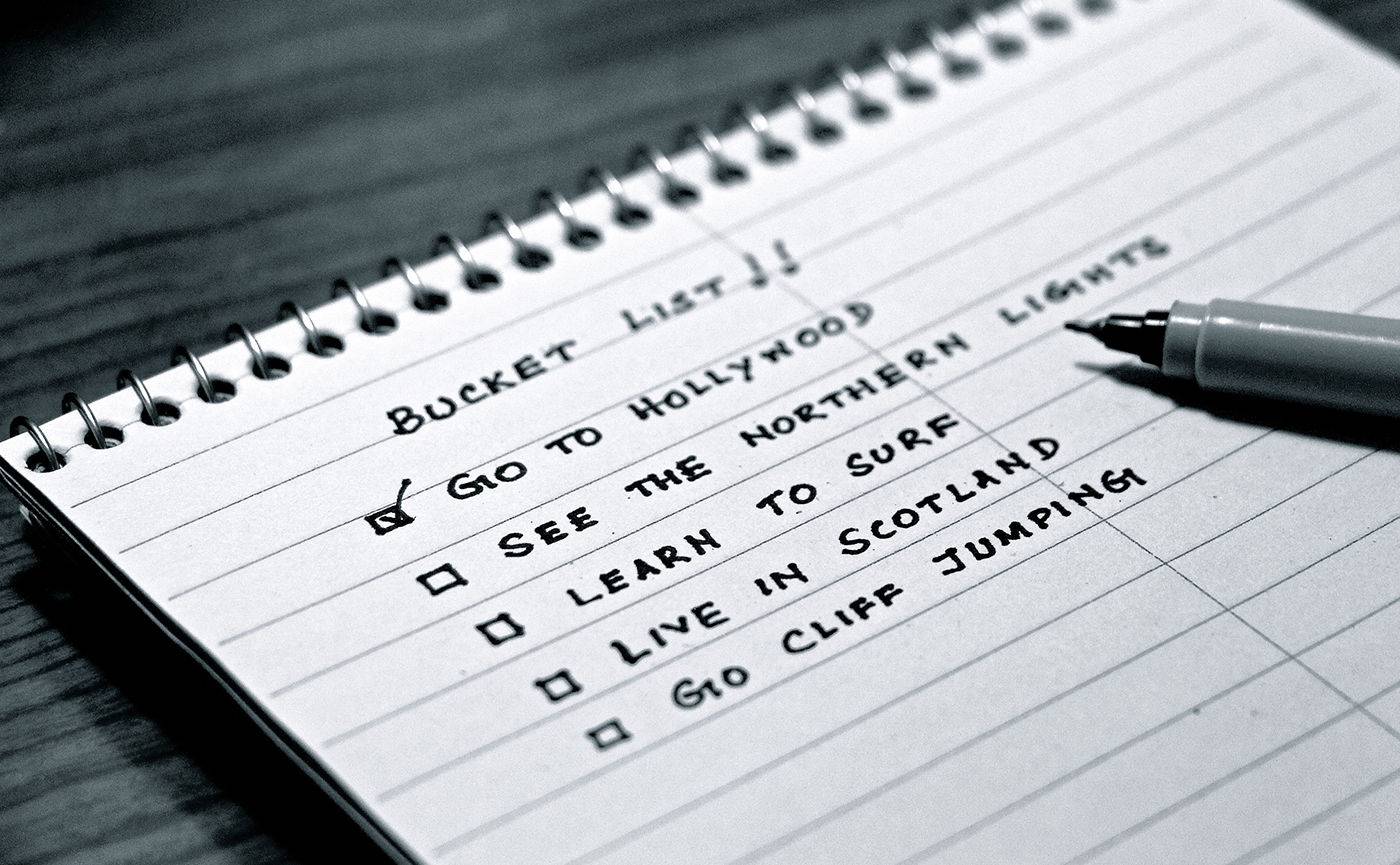 BUCKET LIST!!
GO TO HOLLYWOOD
SEE THE NORTHERN LIGHTS
LEARN TO SURF
LIVE IN SCOTLAND
GO CLIFF JUMPING